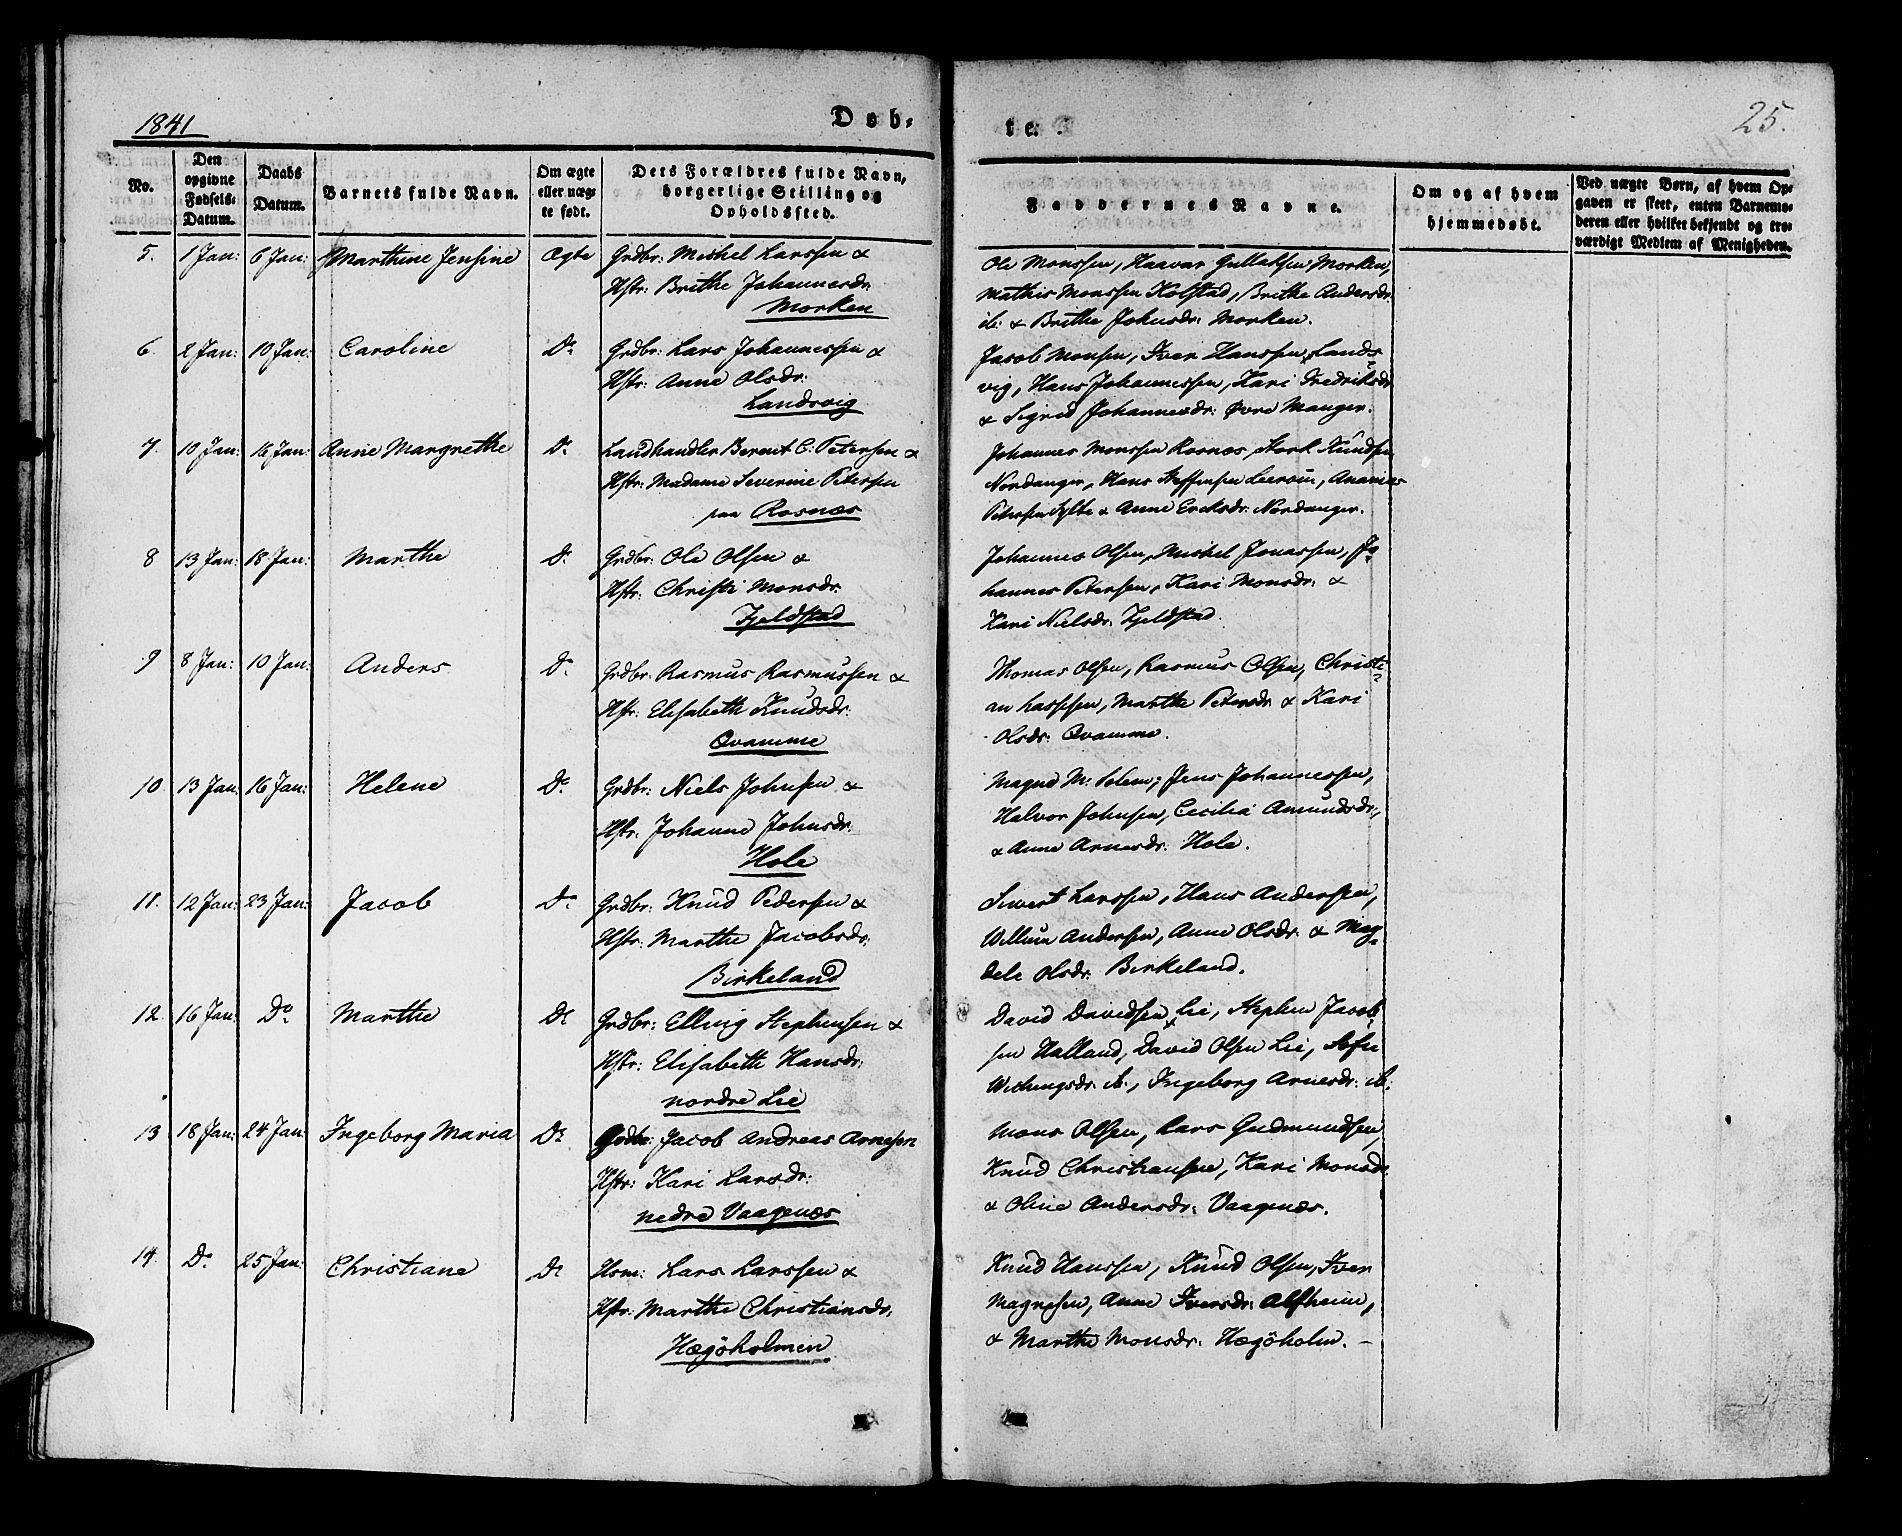 1841
Døb-
te.
25.
No.
Den opgivne Fødsels-Datum.
Daabs Datum.
Barnets fulde Navn.
Om ægte eller uægte født.
Dets Forældres fulde Navn, borgerlige Stilling og Opholdssted.
Faddernes Navne.
Om og af hvem hjemmedøbt.
Ved uægte Børn, af hvem Opgaven er skeet, enten Barnemoderen eller hvilket bekjendt og troværdigt Medlem af Menigheden.
5. 1 Jan: 6 Jan: Marthine Jensine Ægte Grdbr: Mickel Larssen &
Hstr: Brithe Johannesdr:
Morken
Ole Monssen, Haavar Gullaksen Morken,
Mathis Monssen Kolstad, Brithe Andersdr:
ib: & Brithe Johnsdr: Morken.
6. 2 Jan: 10 Jan: Caroline Do Grdbr: Lars Johannessen &
Hstr: Anne Olsdr:
Landsvig
Jacob Monsen, Iver Hanssen Lands-
vig, Hans Johannessen, Kari Fredriksdr:
& Sigrid Johannesdr: Øvre Manger.
7. 10 Jan: 16 Jan: Anne Margrethe Do Landhandler Bernt C. Petersen &
Hstr: Madame Severine Petersen
paa Rosnæs
Johannes Monssen Rosnæs, Stork Knudsen
Nordanger, Hans Steffensen Leeroün, Ananias
Petersen Sylte & Anne Ericksdr: Nordanger.
8 13 Jan: 18 Jan: Marthe Do Grdbr: Ole Olsen &
Hstr: Christi Monsdr:
Fjeldstad
Johannes Olsen, Mickel Jonassen, Jo-
hannes Petersen, Kari Monsdr: &
Kari Nielsdr: Fjeldstad.
9 8 Jan: 10 Jan: Anders Do Grdbr: Rasmus Rasmussen &
Hstr: Elisabeth Knudsdr:
Qvamme
Thomas Olsen, Rasmus Olsen, Christi-
an Larssen, Marthe Petersdr: & Kari
Olsdr: Qvamme.
10 13 Jan: 16 Jan: Helene Do Grdbr: Niels Johnsen &
Hstr: Johanne Johnsdr:
Hole
Magne M: Solem, Jens Johannessen,
Halvor Johnsen, Cecilia Amundsdr:,
& Anne Arnesdr: Hole.
11. 12 Jan: 23 Jan: Jacob Do Grdbr: Knud Pedersen &
Hstr: Marthe Jacobsdr:
Birkeland
Sivert Larssen, Hans Anderssen,
Willum Andersen, Anne Olsdr: & Mag-
dele Olsdr: Birkeland.
12. 16 Jan: Do Marthe Do Grdbr: Elling Stephensen &
Hstr: Elisabeth Hansdr:
nordre Lie
David Davidsen Lie, Stephen Jacob-
sen Halland, David Olsen Lie,
ib:, Ingeborg Arnesdr: ib:
13 18 Jan: 24 Jan: Ingeborg Maria Do Grdbr: Jacob Andreas Arnesen
Hstr: Kari Larsdr:
nedre Vaagenæs
Mons Olsen, Lars Gudmundsen,
Knud Christiansen, Kari Monsdr:
& Oline Andersdr: Vaagenæs.
14. Do 25 Jan: Christiane Do Hsm: Lars Larssen &
Hstr: Marthe Christiansdr:
Hægöholmen
Knud Hanssen, Knud Olsen, Iver
Magnesen, Anne Iversdr: Alfheim,
& Marthe Monsdr: Hægöholm. –